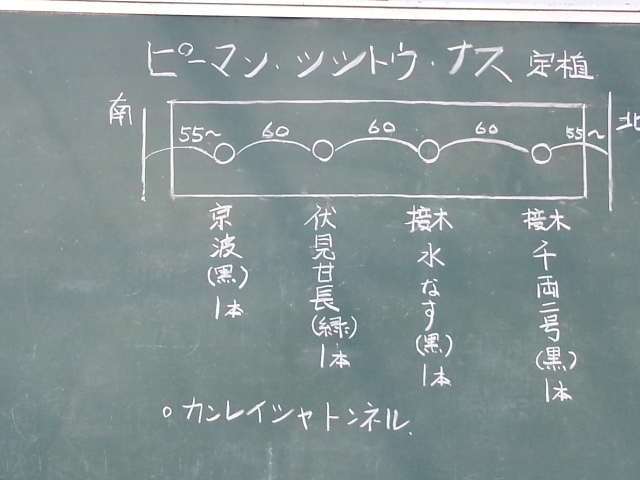 ピーマン・シシトウ・ナス 定植
南 北
55〜 60 60 60 55〜
京波(黒)1本
伏見甘長(緑)1本
接木水なす(黒)1本
接木千両二号(黒)1本
○カンレイシャトンネル.